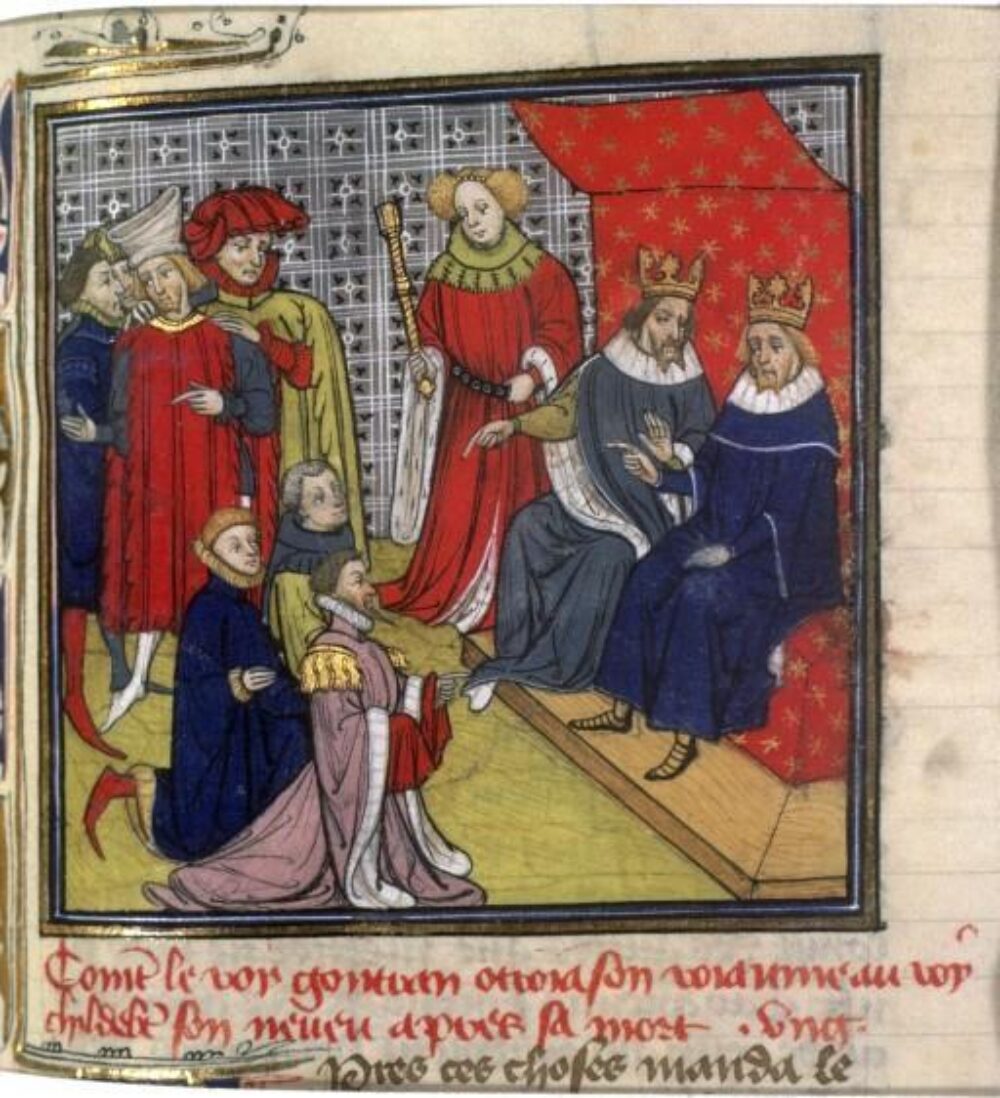 Comē le roy gontran otroia son roiaume au roy
childebt son neueu apres sa mort . vng.
Pres ces choses manda le